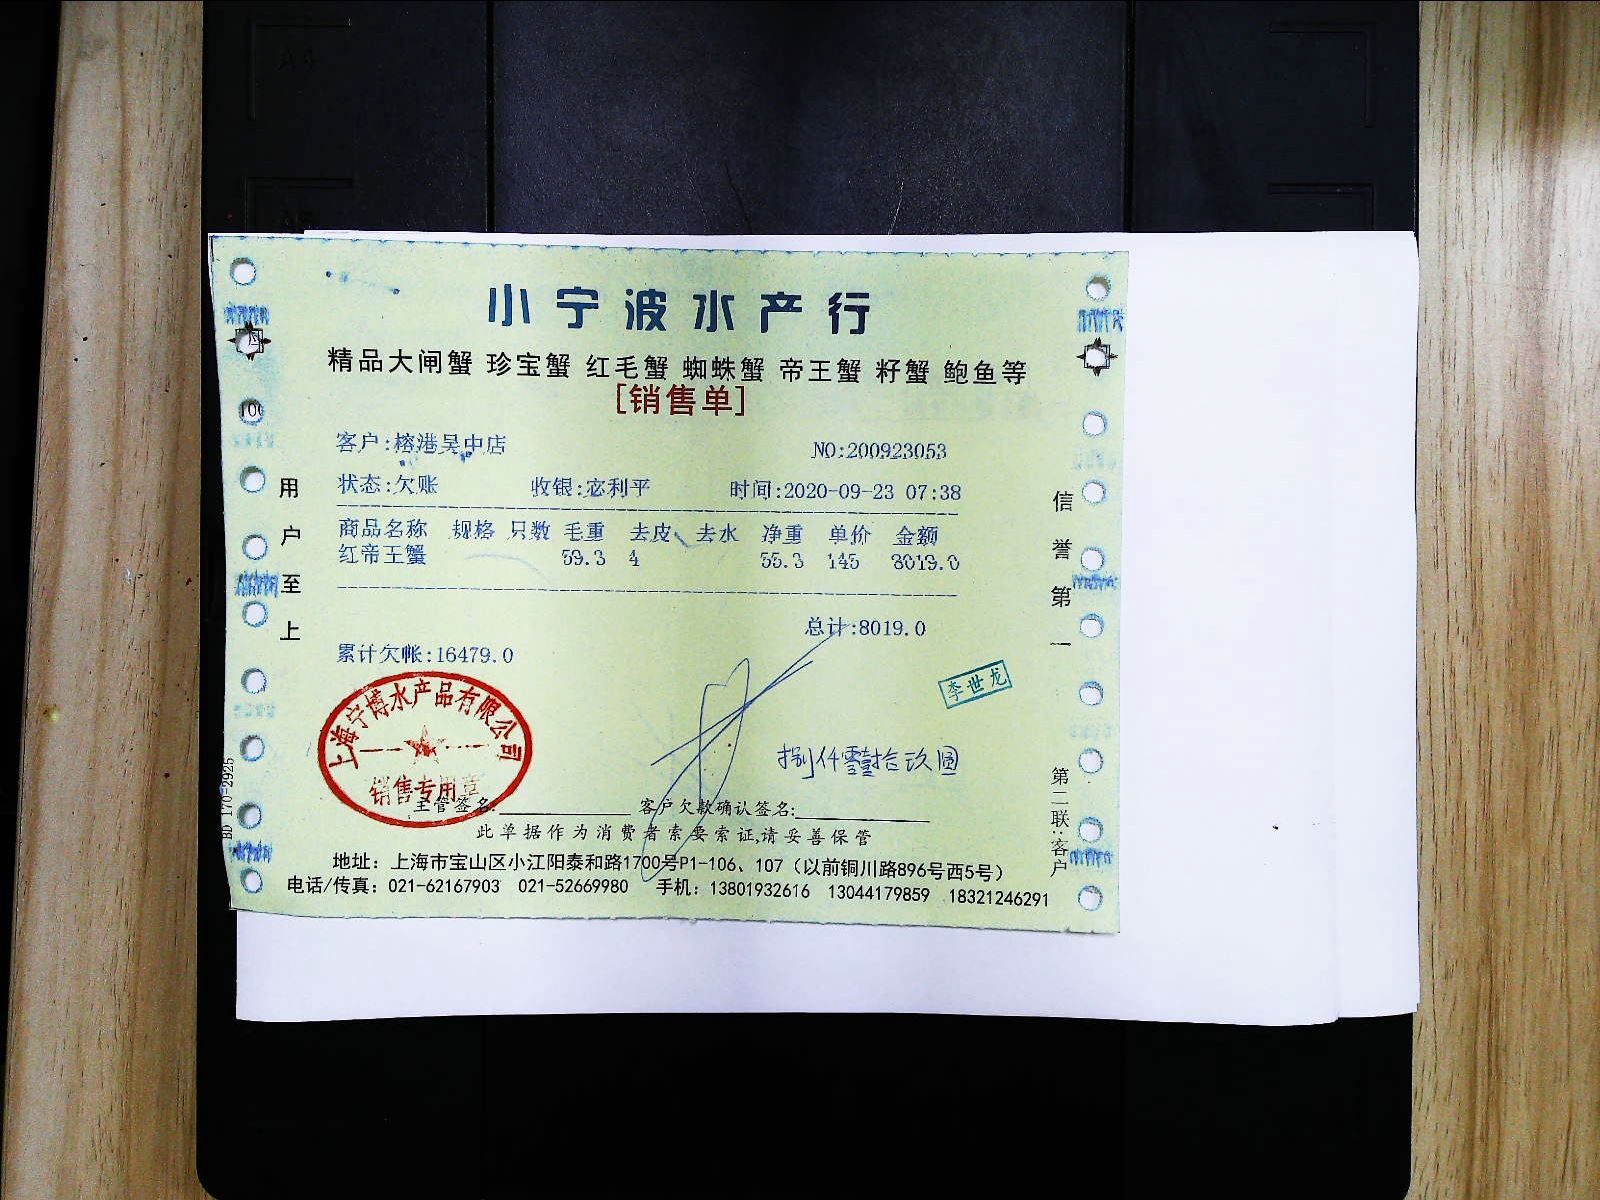 小宁波水产行
精品大闸蟹 珍宝蟹 红毛蟹 蜘蛛蟹 帝王蟹 籽蟹 鲍鱼等
[销售单]
客户:榕港吴中店 NO:200923053
状态:欠账 收银:宓利平 时间:2020-09-23 07:38
商品名称 规格 只数 毛重 去皮 去水 净重 单价 金额
红帝王蟹 59.3 4 55.3 145 8019.0
总计:8019.0
累计欠帐:16479.0
李世龙
上海宁博水产品有限公司
销售专用章
捌仟零壹拾玖圆
主管签名: 客户欠款确认签名:
此单据作为消费者索要索证,请妥善保管
地址：上海市宝山区小江阳泰和路1700号P1-106、107（以前铜川路896号西5号）
电话/传真：021-62167903 021-52669980 手机：13801932616 13044179859 18321246291
用户至上
信誉第一
第二联:客户
A4